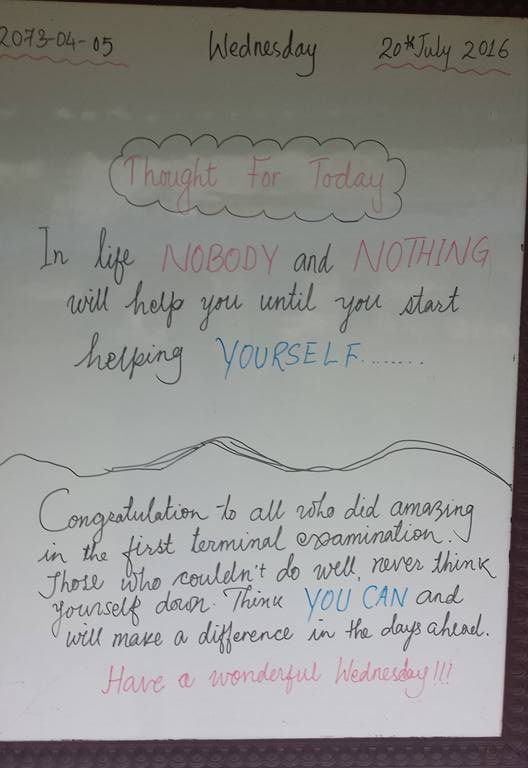 2073-04-05 Wednesday 20th July 2016
Thought For Today
In life NOBODY and NOTHING
will help you until you start
helping YOURSELF........
Congratulation to all who did amazing
in the first terminal examination.
Those who couldn't do well, never think
yourself down. Think YOU CAN and
will make a difference in the days ahead.
Have a wonderful Wednesday!!!